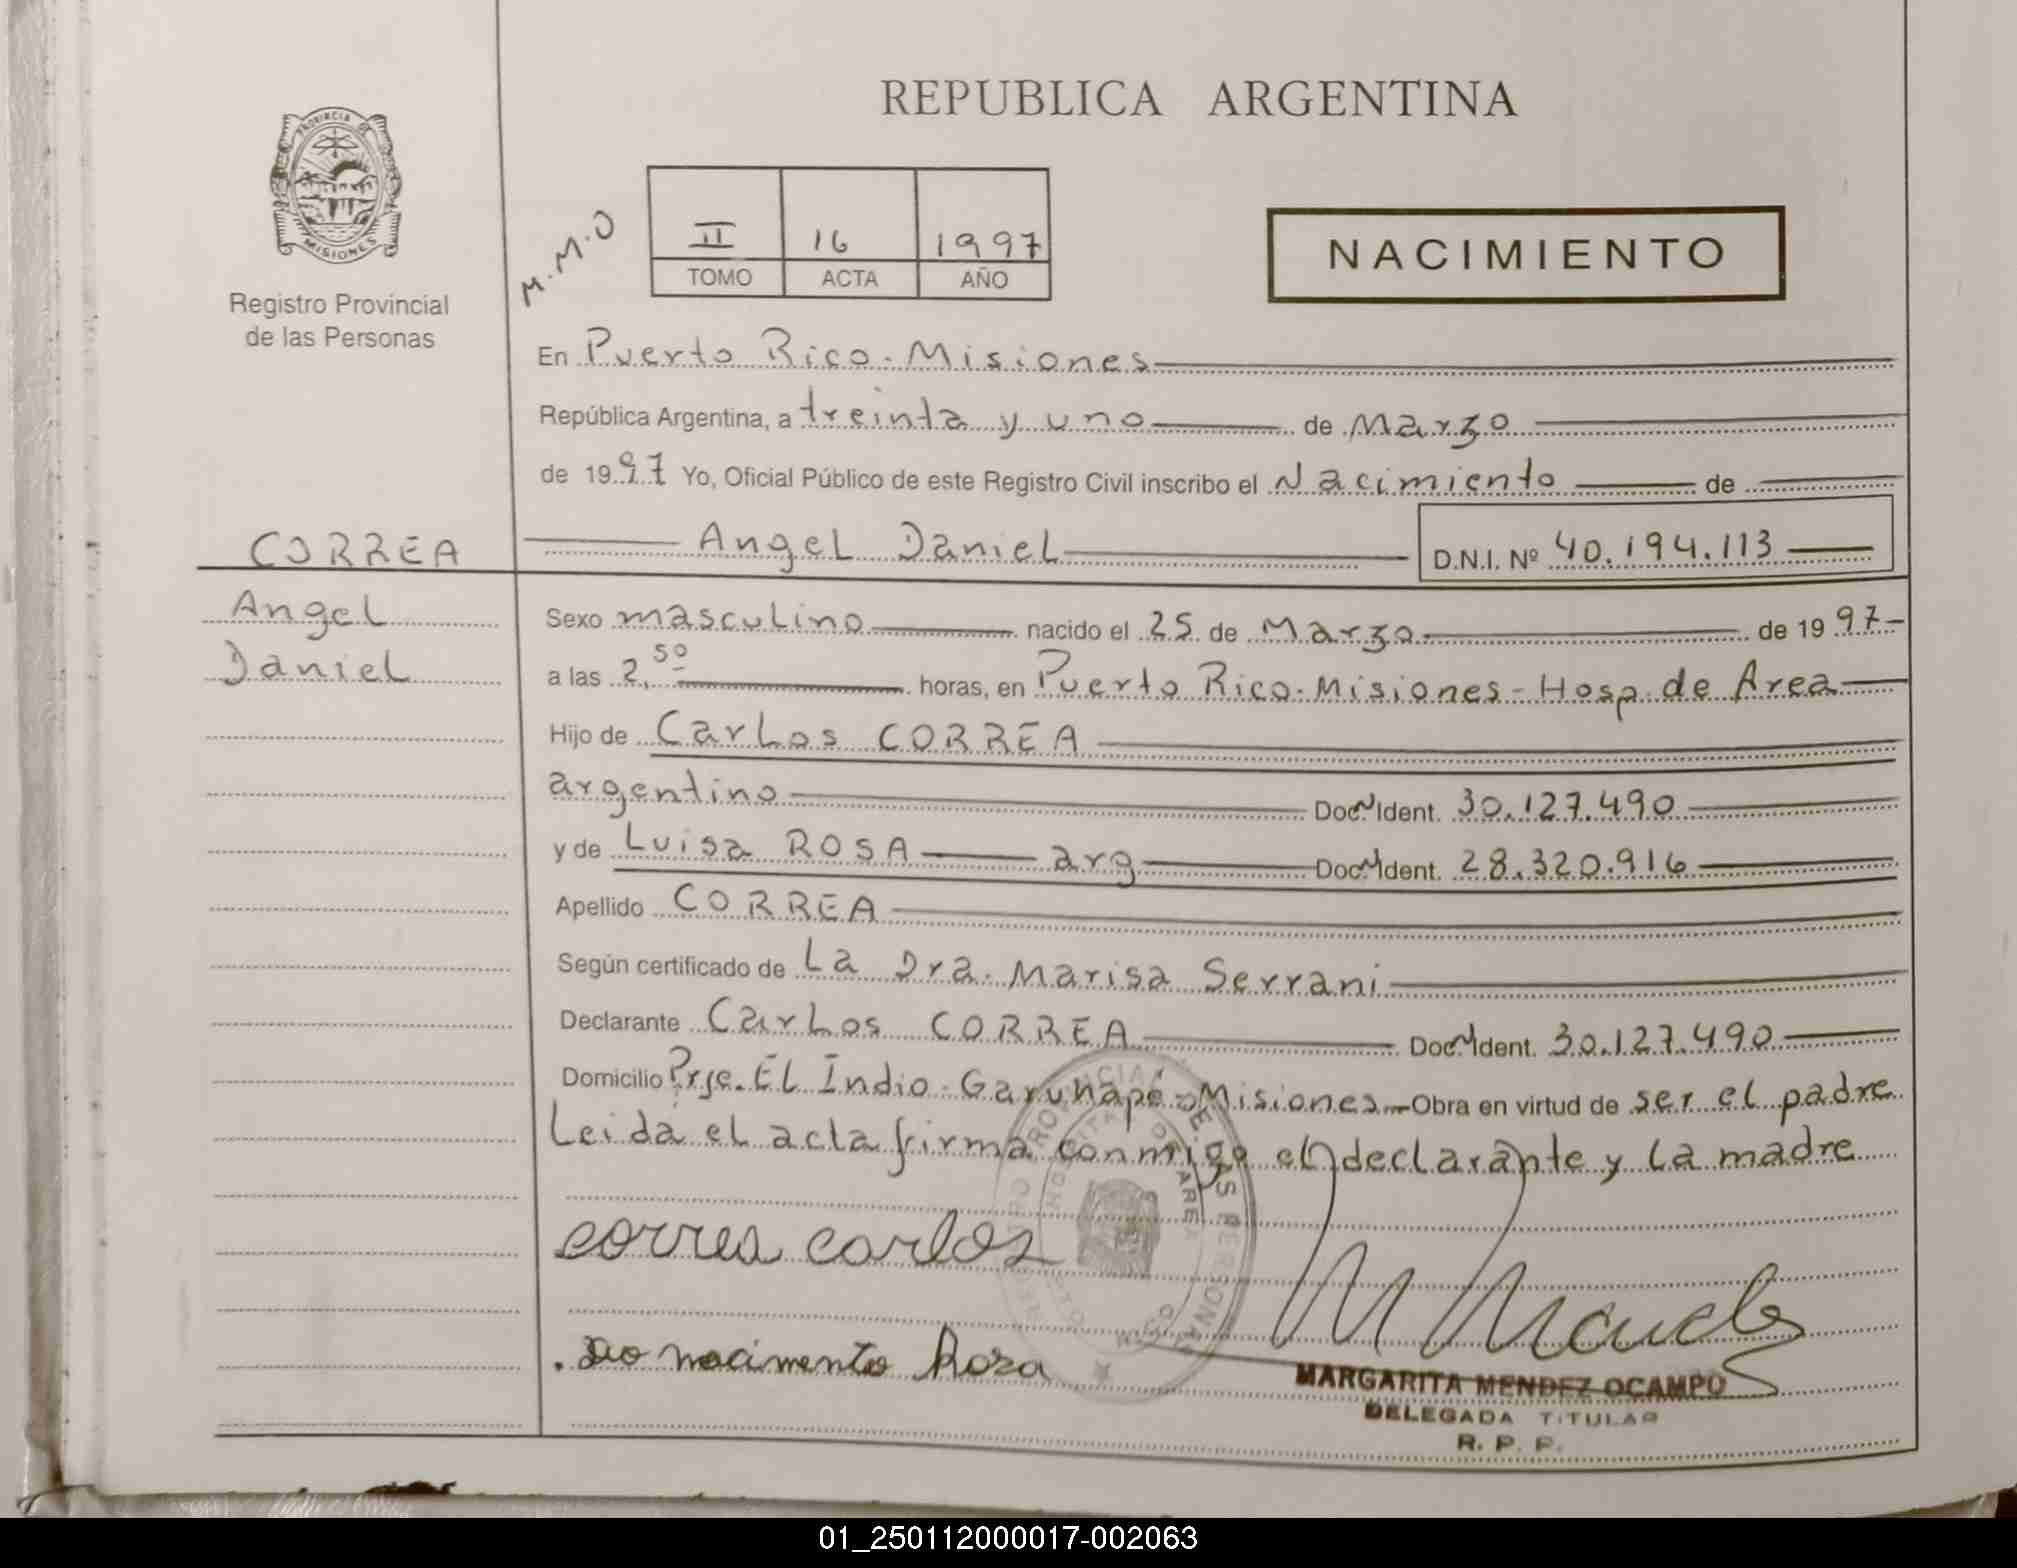 REPUBLICA ARGENTINA
PROVINCIA DE
MISIONES
Registro Provincial
de las Personas
M.M.O
II 16 1997
TOMO ACTA AÑO
NACIMIENTO
En Puerto Rico-Misiones
República Argentina, a treinta y uno de Marzo
de 1997 Yo, Oficial Público de este Registro Civil inscribo el Nacimiento de
CORREA
Angel
Daniel
Angel Daniel D.N.I. Nº 40.194.113
Sexo masculino nacido el 25 de Marzo de 1997
a las 2,50 horas, en Puerto Rico-Misiones-Hosp. de Area
Hijo de Carlos CORREA
argentino Doc. N Ident. 30.127.490
y de Luisa ROSA arg Doc. N Ident. 28.320.916
Apellido CORREA
Según certificado de La Dra. Marisa Serrani
Declarante Carlos CORREA Doc. N Ident. 30.127.490
Domicilio Prje. El Indio-Garuhapé-Misiones Obra en virtud de ser el padre
Leida el acta firma conmigo el declarante y la madre
correa carlos
nacimento Rosa
MARGARITA MENDEZ OCAMPO
DELEGADA TITULAR
R. P. P.
01_250112000017-002063